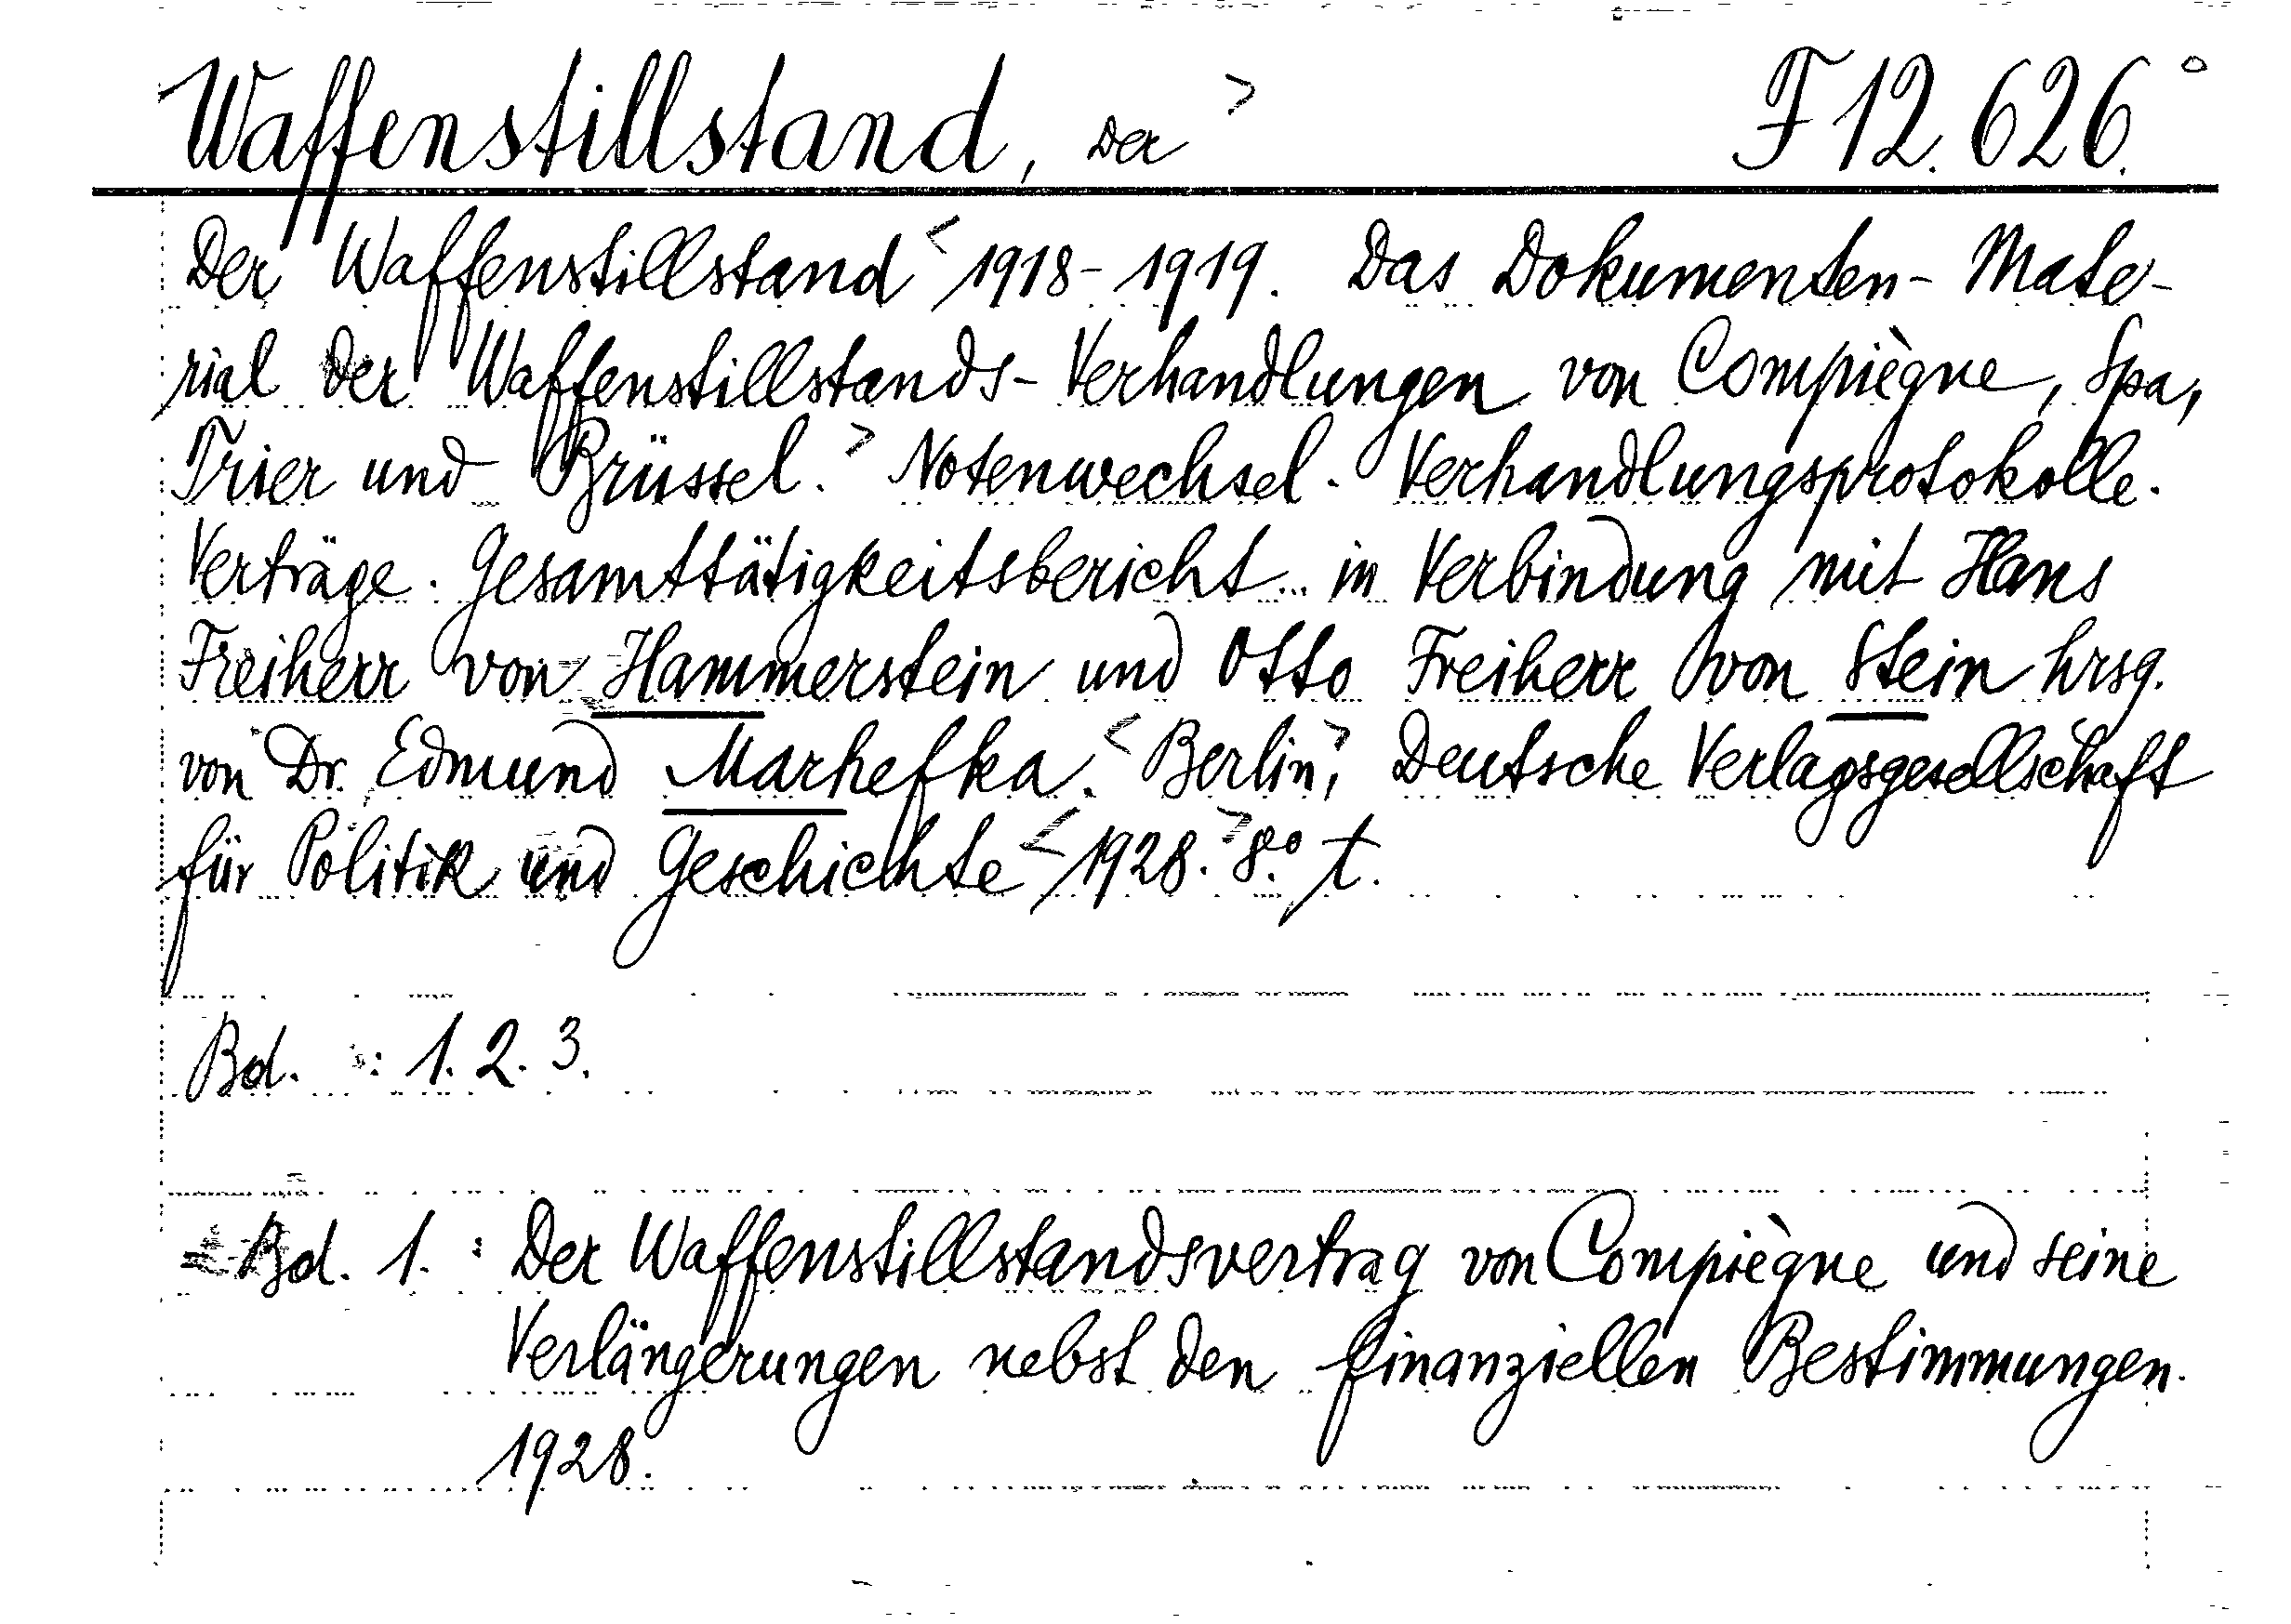 Waffenstillstand, der > F 12.626.°
Der Waffenstillstand < 1918-1919. Das Dokumenten-Mate-
rial der Waffenstillstands-Verhandlungen von Compiègne, Spa,
Trier und Brüssel. > Notenwechsel. Verhandlungsprotokolle.
Verträge. Gesamttätigkeitsbericht... in Verbindung mit Hans
Freiherr von Hammerstein und Otto Freiherr von Stein hrsg.
von Dr. Edmund Marhefka. < Berlin, > Deutsche Verlagsgesellschaft
für Politik und Geschichte < 1928. > 8.° t.
Bd. : 1. 2. 3.
Bd. 1. : Der Waffenstillstandsvertrag von Compiègne und seine
Verlängerungen nebst den finanziellen Bestimmungen.
1928.